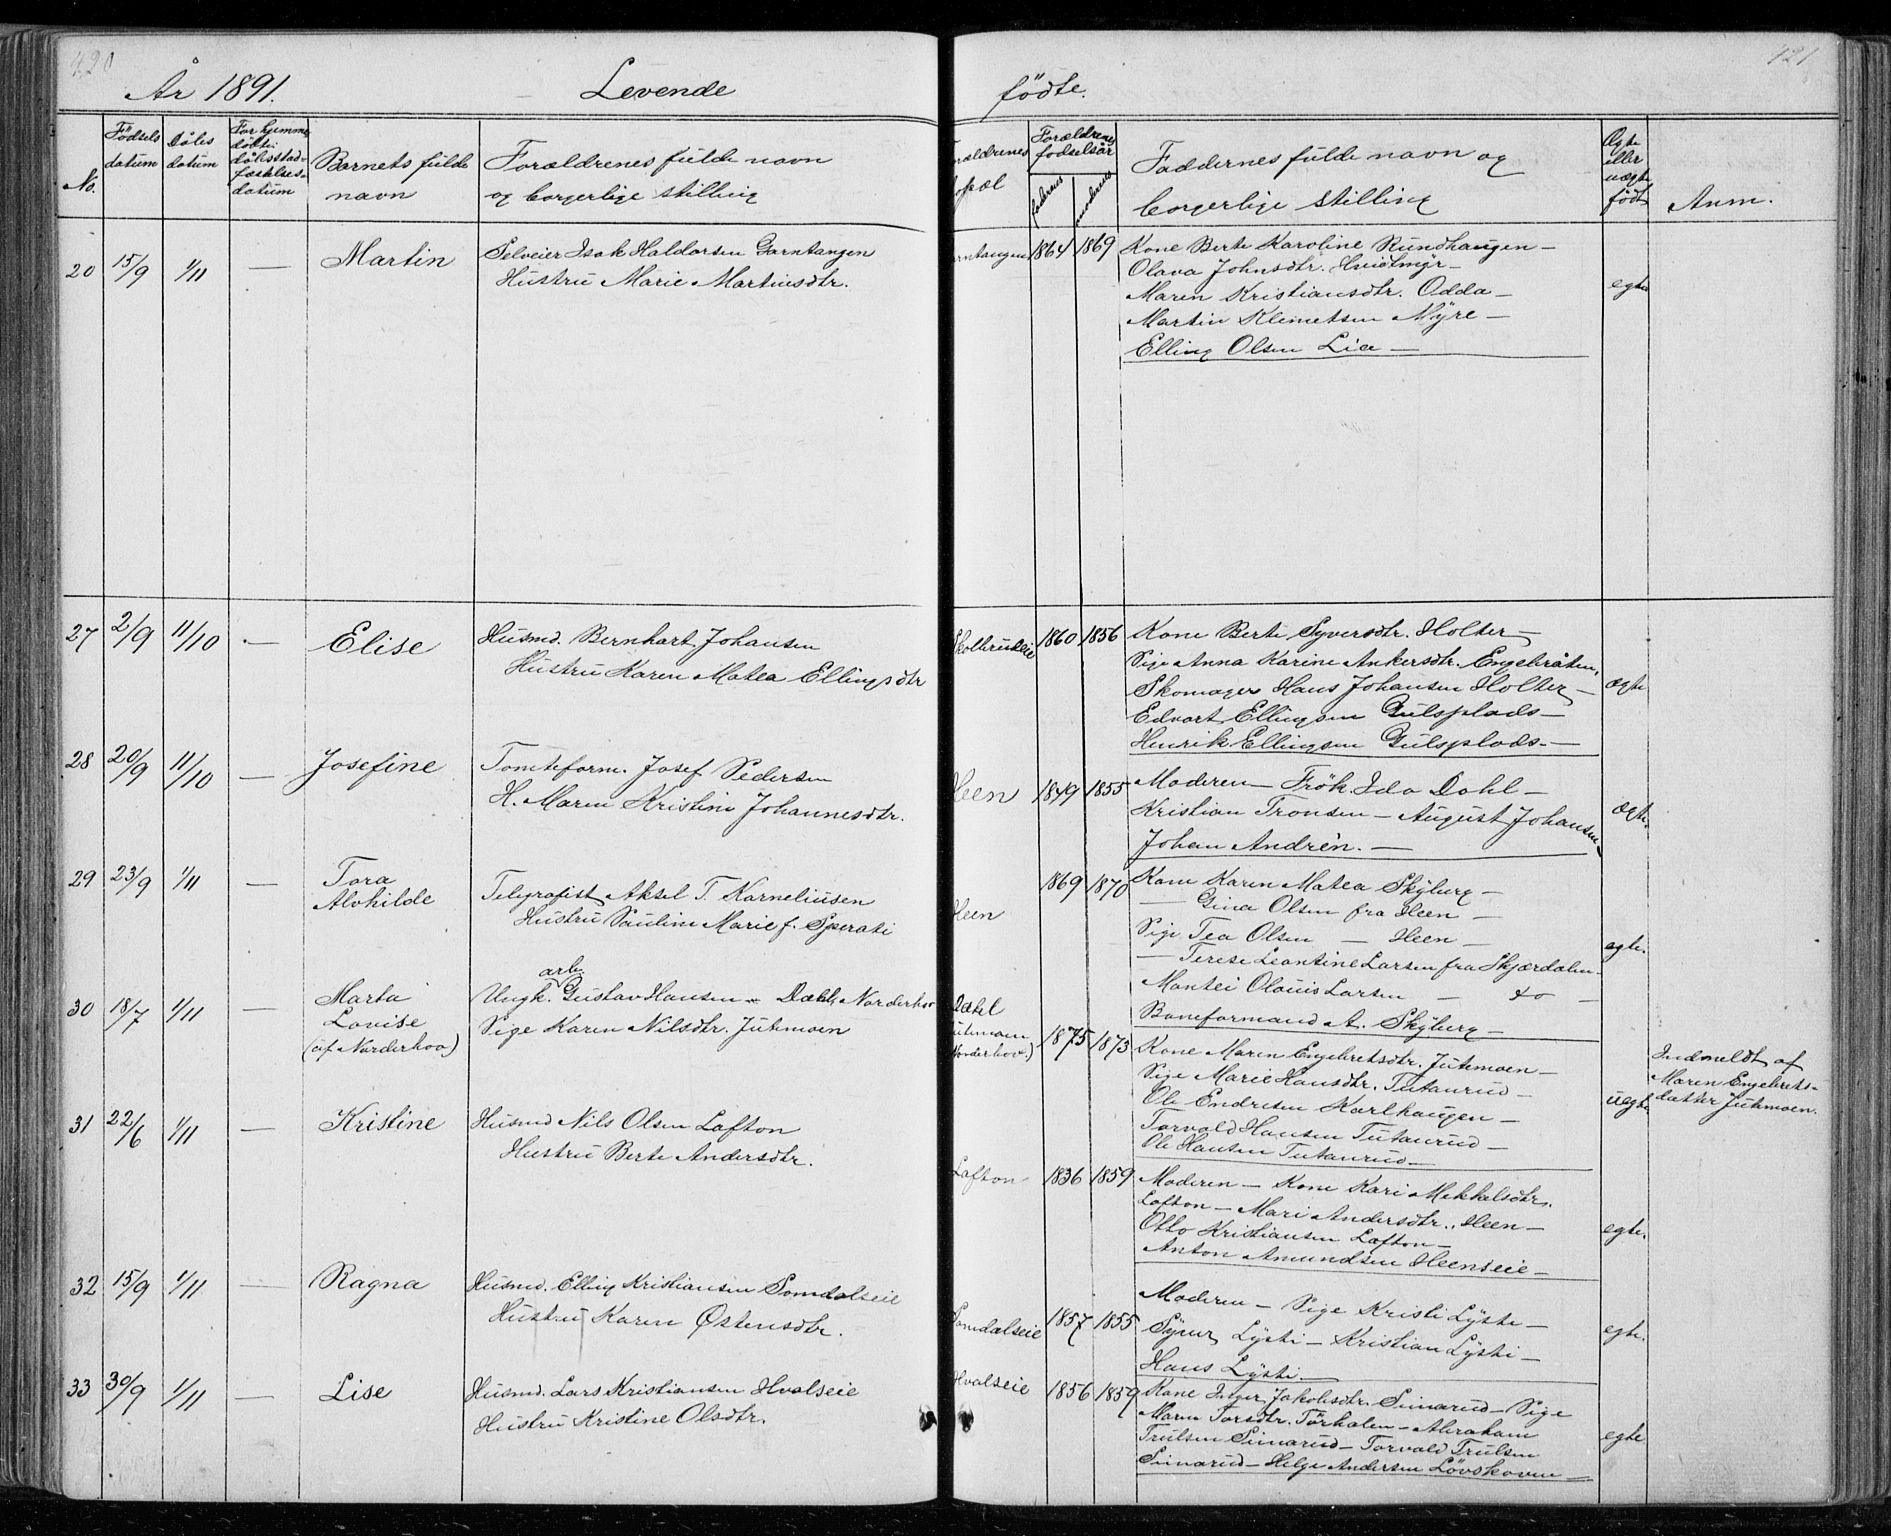 420
År 1891.
Levende
No.
Fødsels
datum
Dåbs
datum
For hjemme
døbte:
dåbsstad-
fæstelses-
datum
Barnets fulde
navn
Forældrenes fulde navn
og borgerlige stilling
20
15/9
1/11
—
Martin
Selveier Isak Haldorsen Garntangen
Hustru Marie Martinsdtr.
27
2/9
11/10
—
Elise
Husmd. Bernhart Johansen
Hustru Karen Matea Ellingsdtr
28
20/9
11/10
—
Josefine
Tomteform. Josef Pedersen
H. Maren Kristine Johannesdtr.
29
23/9
1/11
—
Tora
Alvhilde
Telegrafist Aksel T. Karneliusen
Hustru Pauline Marie f. Sperati
30
18/7
1/11
—
Marta
Lovise
(af Norderhov)
arb.
Ungk. Gustav Hansen - Dæhli Norderhov
Pige Karen Nilsdtr. Juhmoen
31
22/6
1/11
—
Kristine
Husmd Nils Olsen Lafton
Hustru Berte Andersdtr.
32
15/9
1/11
—
Ragna
Husmd. Elling Kristiansen Somdalseie
Hustru Karen Østensdtr.
33
30/9
1/11
—
Lise
Husmd. Lars Kristiansen Hvalseie
Hustru Kristine Olsdtr.
421
fødte.
Forældrenes
fødselsår
faderens
moderens
Faddernes fulde navn og
borgerlige stilling
Ægte
eller
uægte
født
Anm.
1864
1869
Kone Berte Karoline Rundhaugen —
Olava Johnsdtr. Hvidtmyr —
Maren Kristiansdtr. Odda —
Martin Klemetsen Myre —
Elling Olsen Lia —
egte
1860
1856
Kone Berte Syversdtr. Holter —
Pige Anna Karine Ankersdtr. Engebråten,
Skomager Hans Johansen Holter —
Edvart Ellingsen Gulsplads —
Henrik Ellingsen Gulsplads. —
ægte
Heen
1849
1855
Moderen — Frøk. Ida Dahl —
Kristian Tronsen — August Johansen —
Johan Andrèn. —
ægte.
Heen
1869
1870
Kone Karen Matea Skyberg —
— Gina Olsen fra Heen —
Pige Tea Olsen — Heen —
— Terese Leontine Larsen fra Skjærdalen —
Montei Olauis Larsen — do —
Baneformand A. Skyberg —
egte.
1875
1873
Kone Maren Engebretsdtr. Juhmoen —
Pige Marie Hansdtr. Tutanrud —
Ole Endresen Karlhaugen —
Torvald Hansen Tutanrud —
Ole Hansen Tutanrud —
uegte
Indmeldt af
Maren Engebrets-
datter Juhmoen.
Lafton
1836
1859
Moderen — Kone Kari Mekkelsdtr.
Lafton — Mari Andersdtr. Heen —
Otto Kristiansen Lafton —
Anton Amundsen Heenseie —
egte.
Somdalseie
1857
1855
Moderen — Pige Kristi Lyste —
Syver Lysti — Kristian Lysti —
Hans Lysti. —
egte.
Hvalseie
1856
1859
Kone Inger Jakobsdtr. Simarud — Pige
Maren Torsdtr. Törhalen — Abraham
Trulsen Simarud — Torvald Trulsen
Simarud — Helge Andersen Løvskoven —
egte